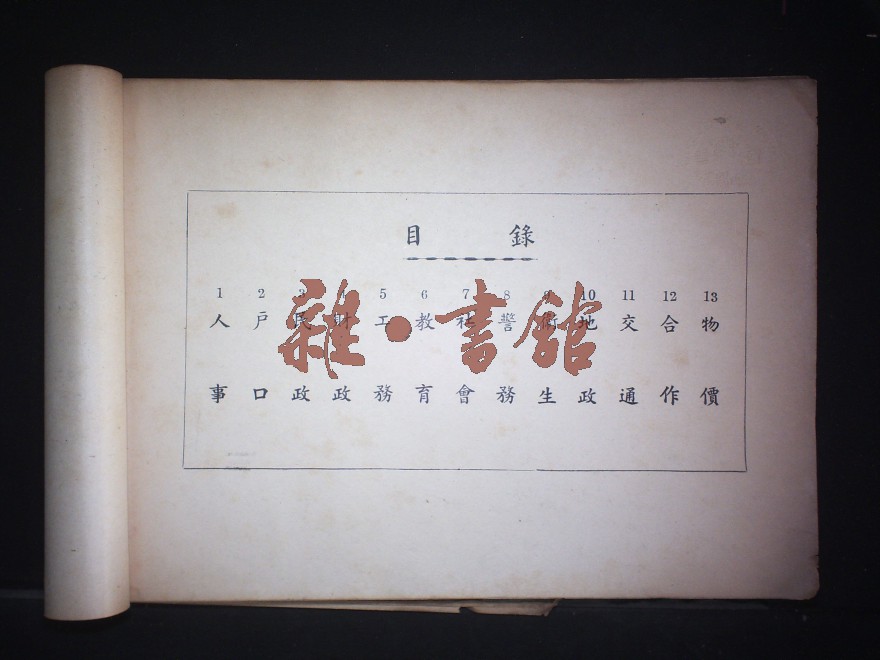 目錄
1 人事
2 戶口
3 民政
4 財政
5 工務
6 教育
7 社會
8 警務
9 衛生
10 地政
11 交通
12 合作
13 物價
雜·書館